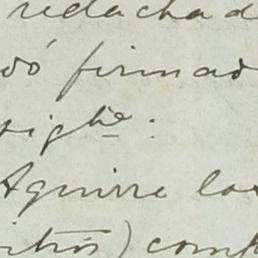 redactad
dó firmad
sigte:
Aguirre los
itrós) comp